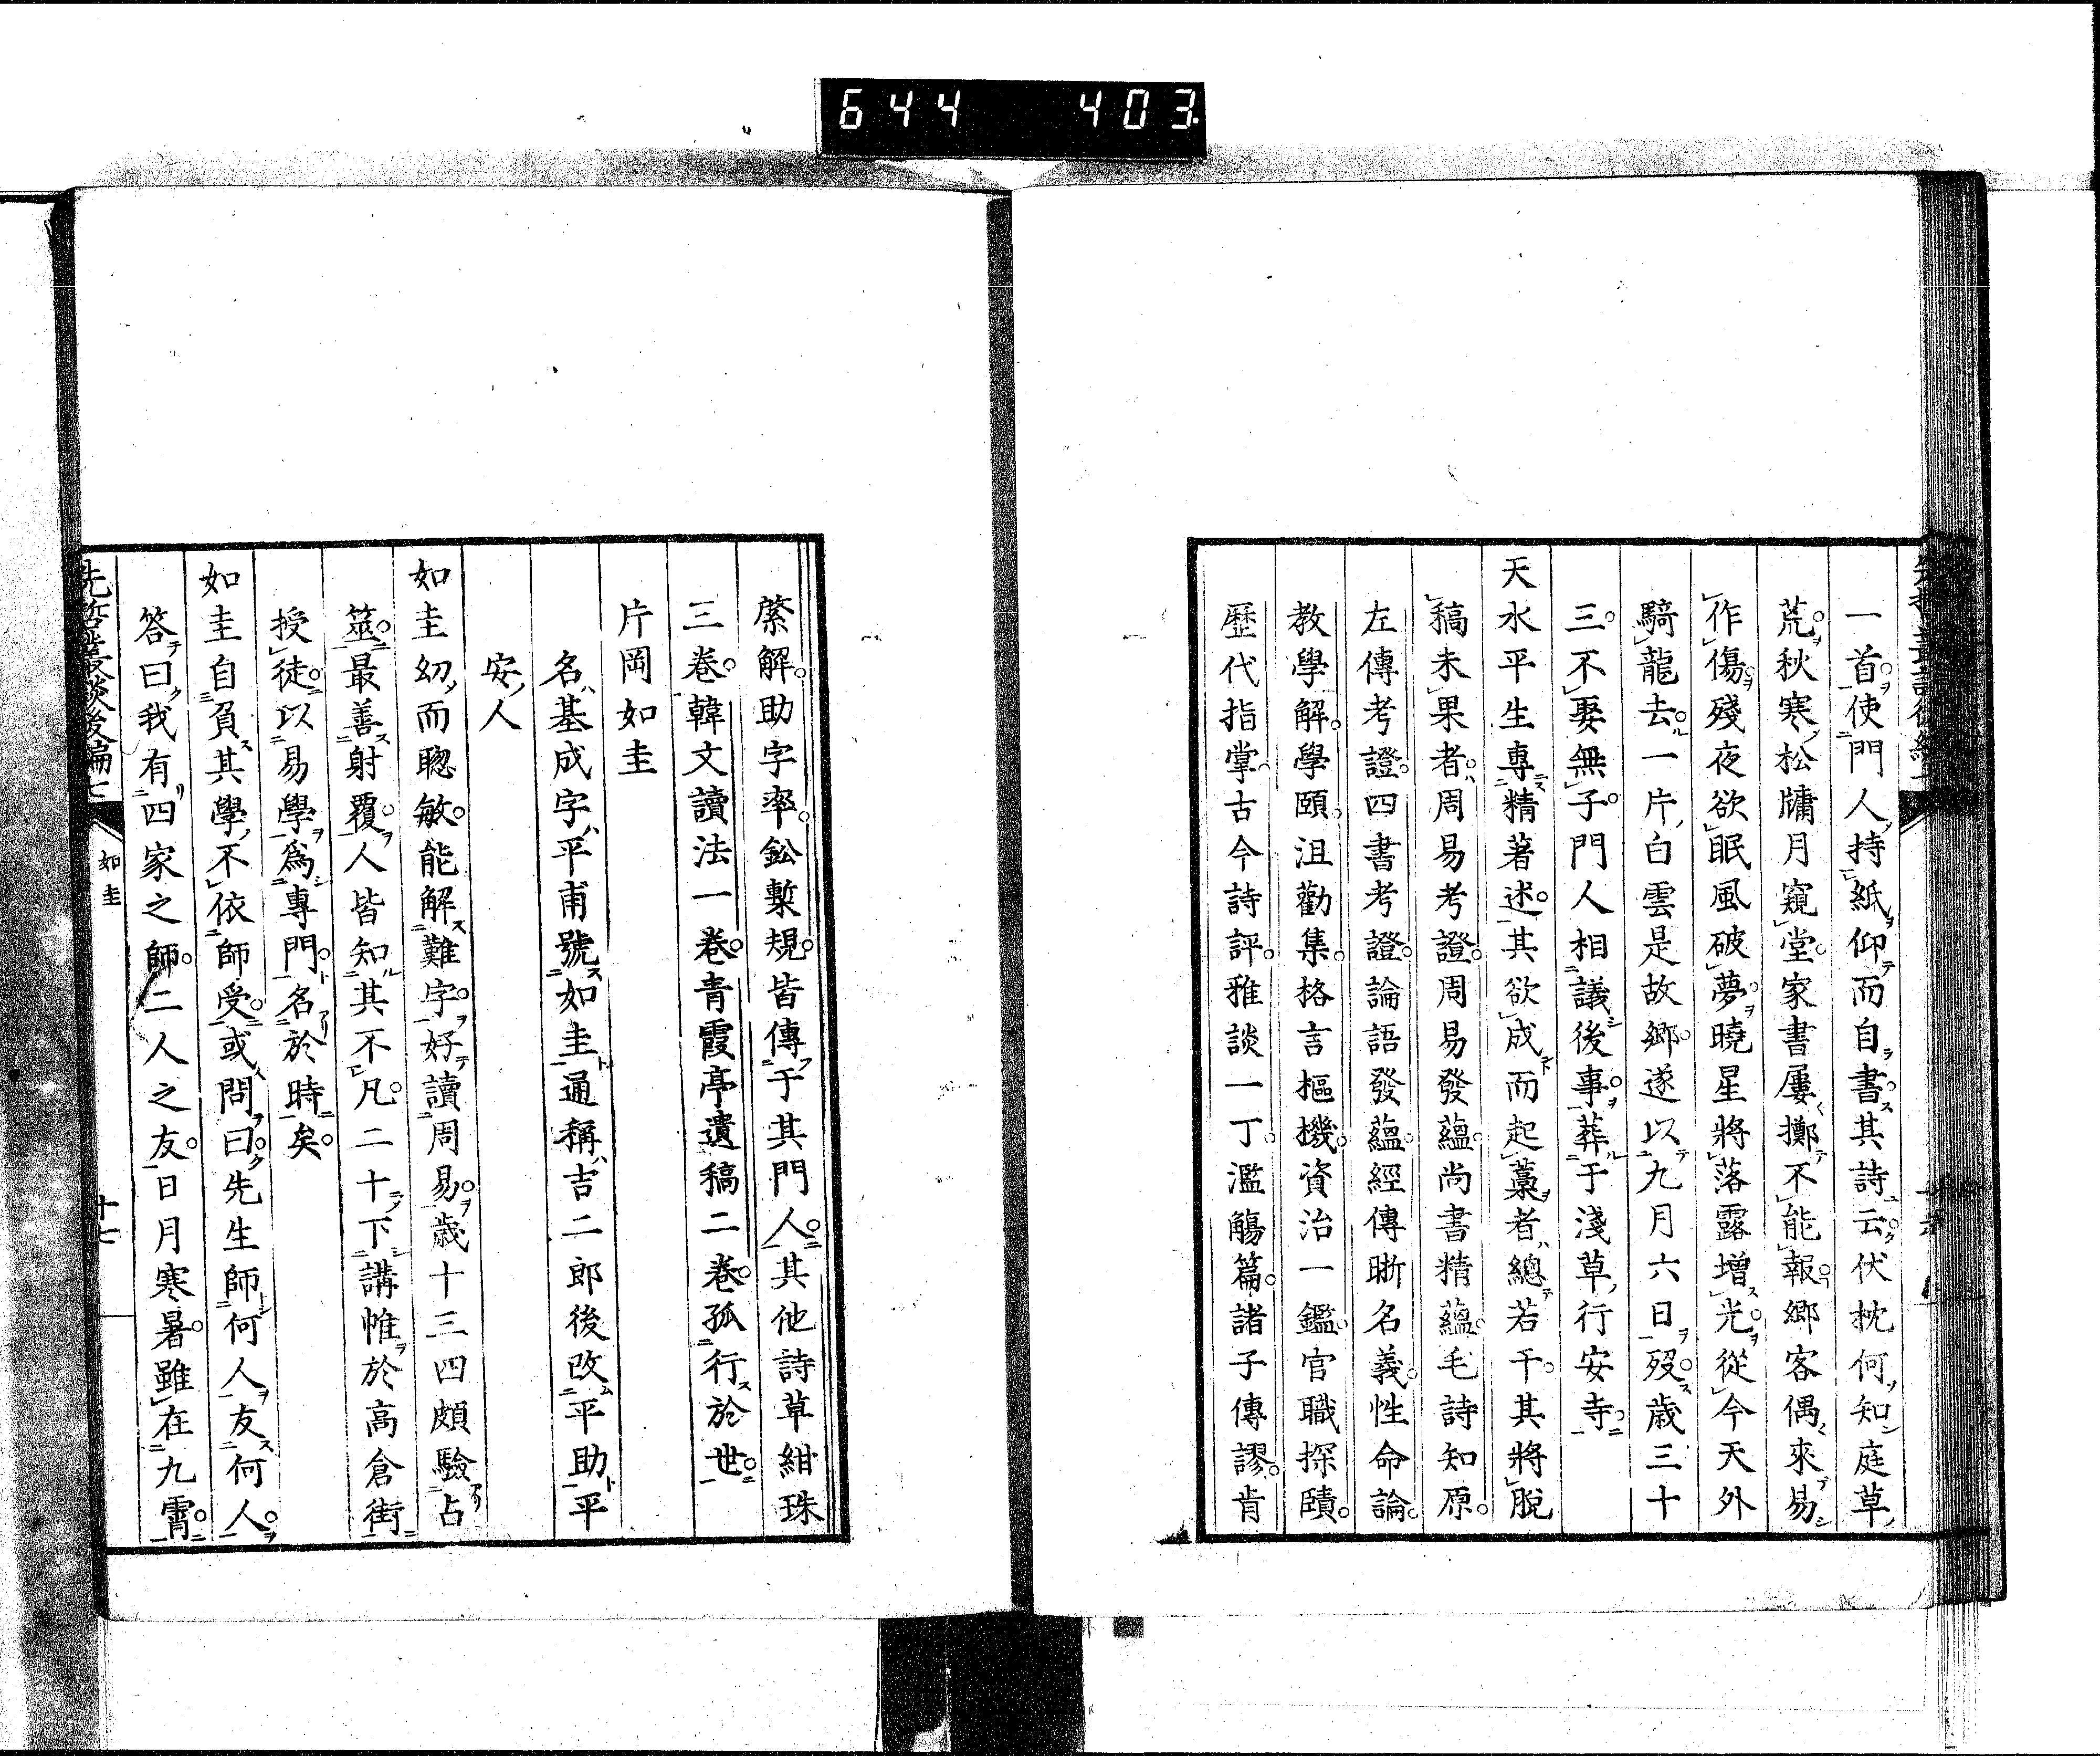 644 403
一首使門人持紙仰而自書其詩云伏枕何知庭草
荒秋寒松牗月窺堂家書屢擲不能報鄉客偶來易
作傷殘夜欲眠風破夢曉星將落露增光從今天外
騎龍去一片白雲是故鄉遂以九月六日歿歳三十
三不娶無子門人相議後事葬于淺草行安寺
天水平生專精著述其欲成而起藁者總若干其將脫
稿未果者周易考證周易發蘊尚書精蘊毛詩知原
左傳考證四書考證論語發蘊經傳晣名義性命論
教學解學頤沮勸集格言樞機資治一鑑官職探賾
歷代指掌古今詩評雅談一丁濫觴篇諸子傳謬肯
綮解助字率鈆槧規皆傳于其門人其他詩草紺珠
三卷韓文讀法一卷青霞亭遺稿二卷孤行於世
片岡如圭
名基成字平甫號如圭通稱吉二郎後改平助平
安人
如圭幼而聰敏能解難字好讀周易歳十三四頗驗占
筮最善射覆人皆知其不凡二十下講帷於高倉街
授徒以易學爲專門名於時矣
如圭自負其學不依師受或問曰先生師何人友何人
答曰我有四家之師二人之友日月寒暑雖在九霄
先哲叢談後編七
如圭
十七